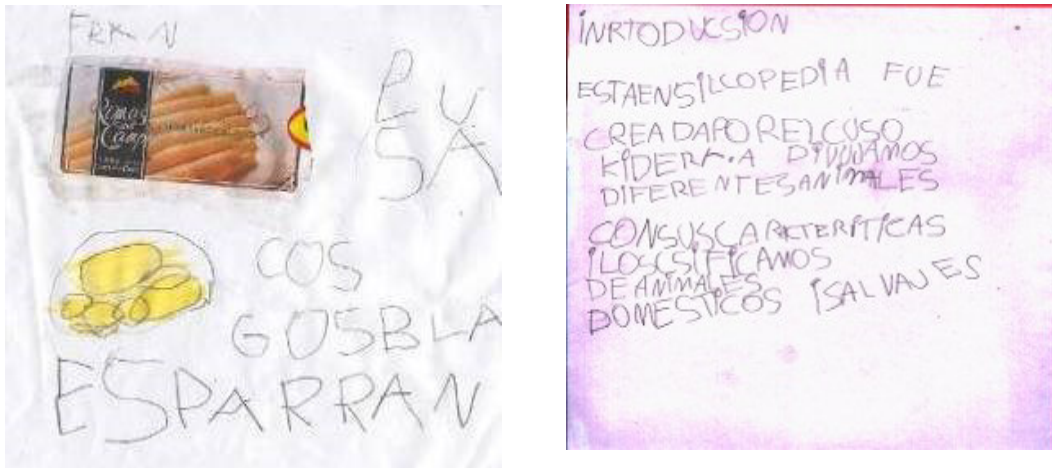 FRKN
SA
COS
GOSBLA
ESPARRAN
INRTODUCSION
ESTAENSILCOPEDIA FUE
CREADAPORELCUSO
KIDERK.A DIVUJAMOS
DIFERENTESANIMALES
CONSUSCARKTERITICAS
ILOSCSIFICAMOS
DEANIMALES
DOMESTICOS ISALVAJES